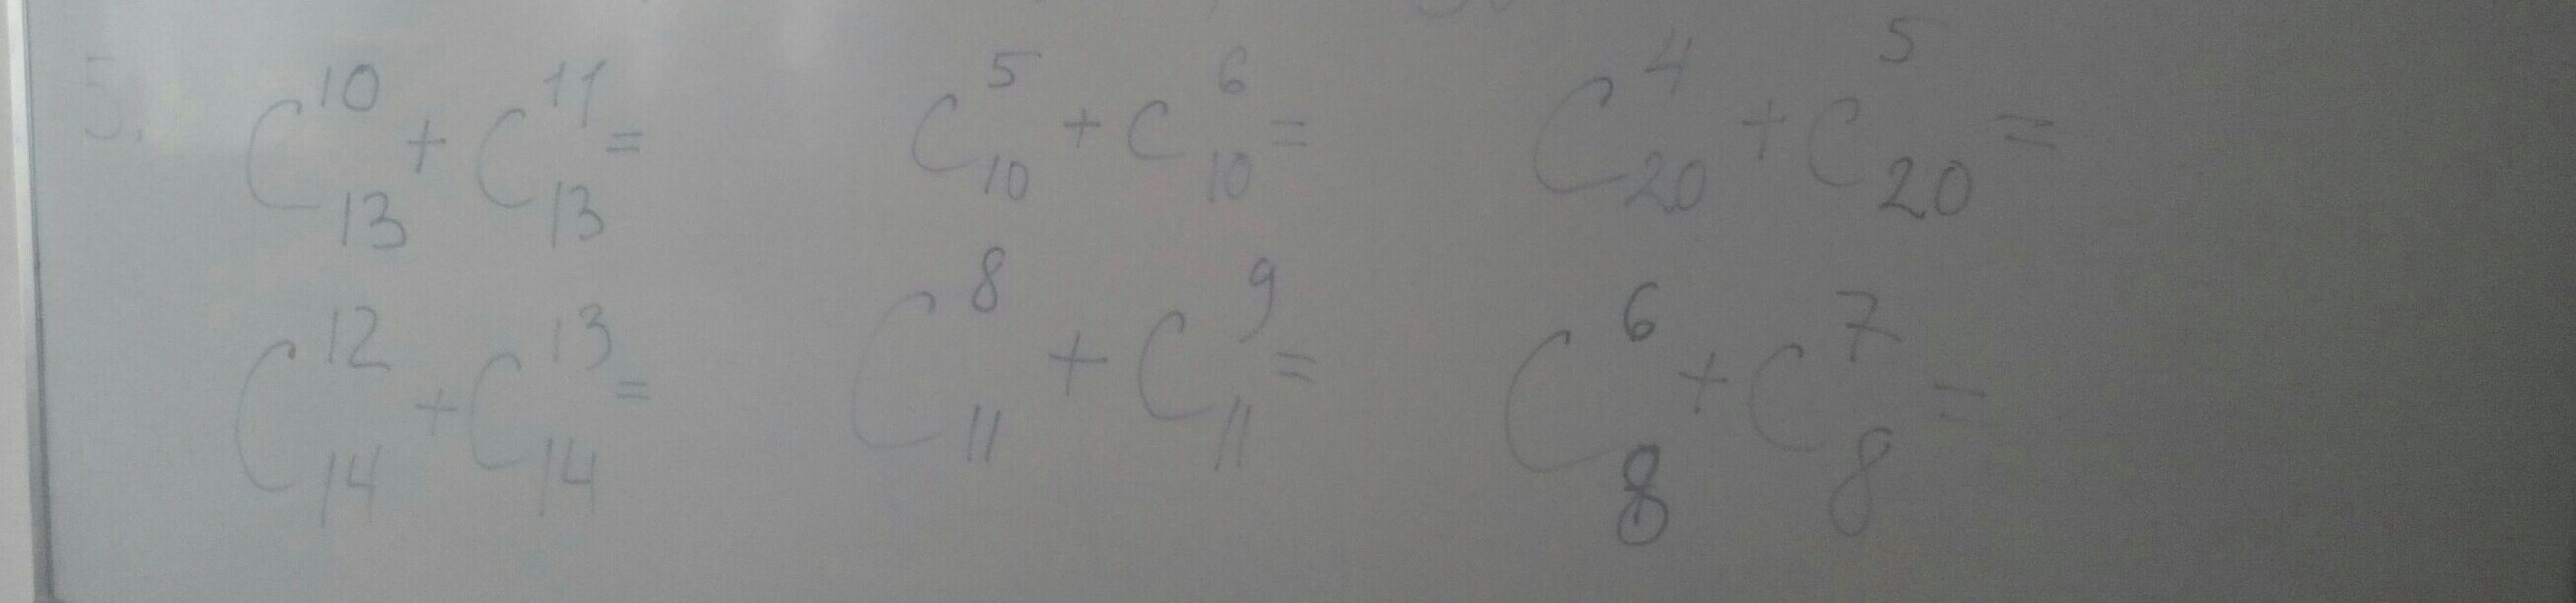 5. C₁₃¹⁰ + C₁₃¹¹ = C₁₀⁵ + C₁₀⁶ = C₂₀⁴ + C₂₀⁵ =
C₁₄¹² + C₁₄¹³ = C₁₁⁸ + C₁₁⁹ = C₈⁶ + C₈⁷ =